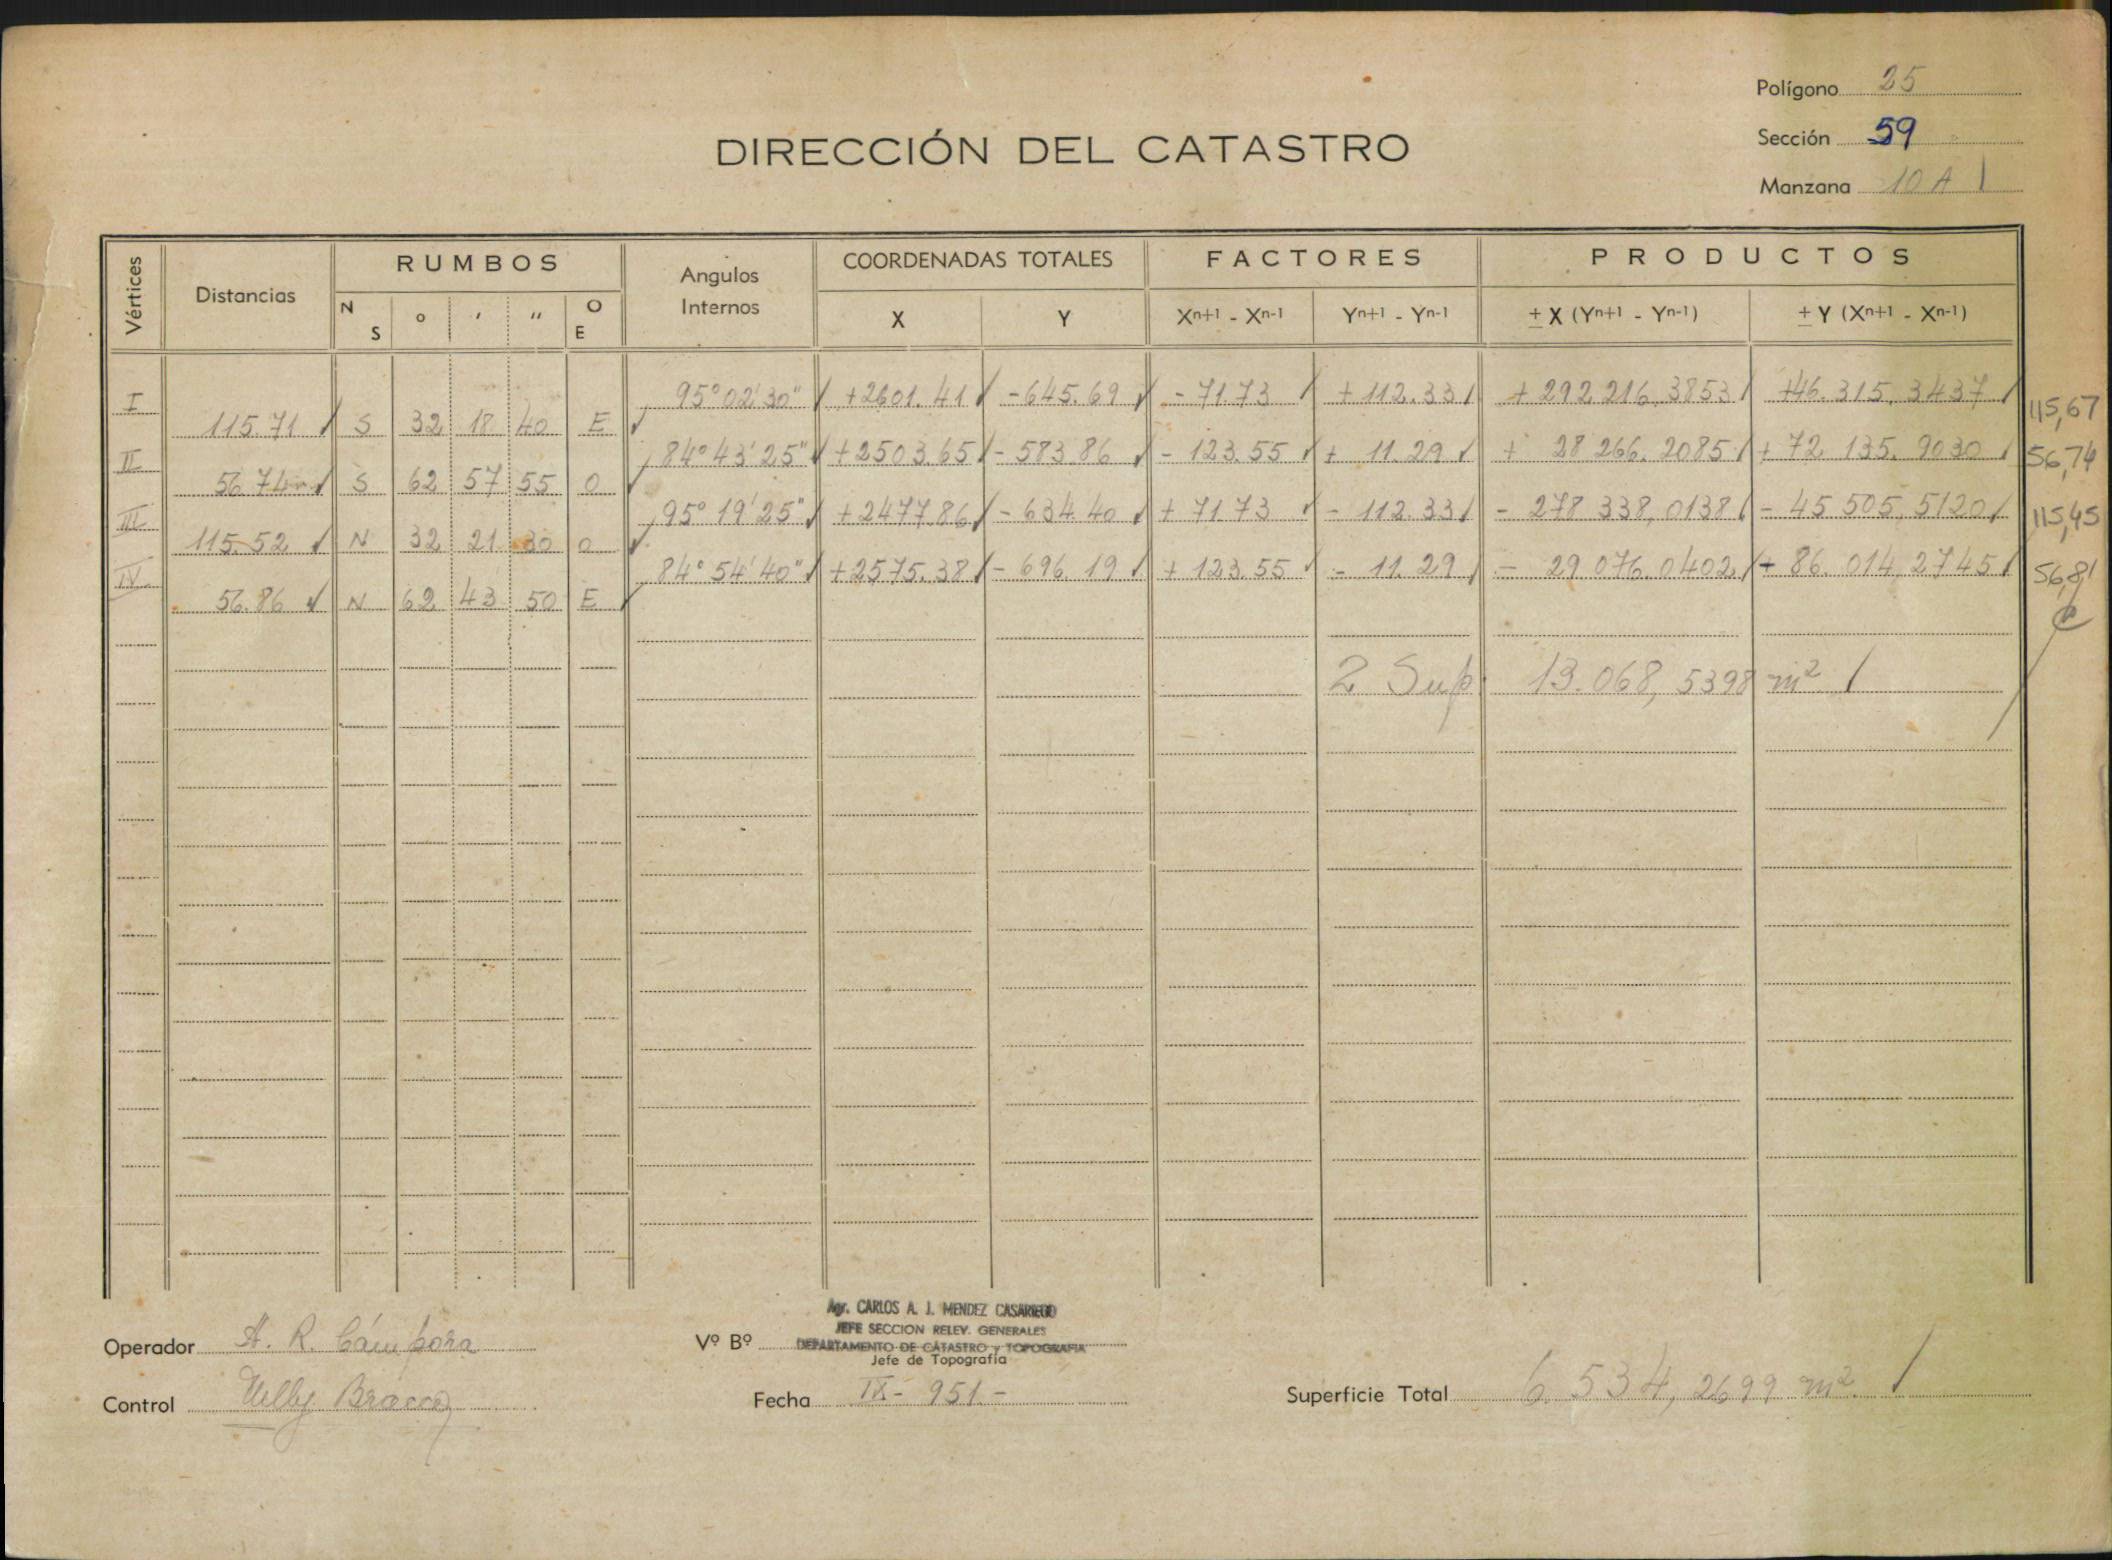 Polígono 25
DIRECCIÓN DEL CATASTRO
Sección 59
Manzana 10 A
Vértices
Distancias
RUMBOS
N S ° ' " O E
Angulos Internos
COORDENADAS TOTALES
X Y
FACTORES
Xn+1 - Xn-1 Yn+1 - Yn-1
PRODUCTOS
± X (Yn+1 - Yn-1) ± Y (Xn+1 - Xn-1)
I 95° 02' 30" +2601.41 -645.69 - 71.73 + 112.33 + 292.216.3853 +46.315.3437
115.71 S 32 18 40 E 115,67
II 84° 43' 25" +2503.65 - 583.86 - 123.55 + 11.29 + 28 266.2085 + 72 135.9030
56.74 S 62 57 55 O 56,74
III 95° 19' 25" +2477.86 - 634.40 + 71.73 - 112.33 - 278 338,0138 - 45 505,5120
115.52 N 32 21 30 O 115,45
IV 84° 54' 40" +2575.38 - 696.19 + 123.55 - 11.29 - 29 076.0402 + 86.014,2745
56.86 N 62 43 50 E 56,81
2 Sup. 13.068,5398 m²
Agr. CARLOS A. J. MENDEZ CASARIEGO
JEFE SECCION RELEV. GENERALES
DEPARTAMENTO DE CATASTRO y TOPOGRAFIA
Operador A. R. Cámpora
Vº Bº
Jefe de Topografía
Control Nelly Bracco
Fecha IX - 951.-
Superficie Total 6.534,2699 m².